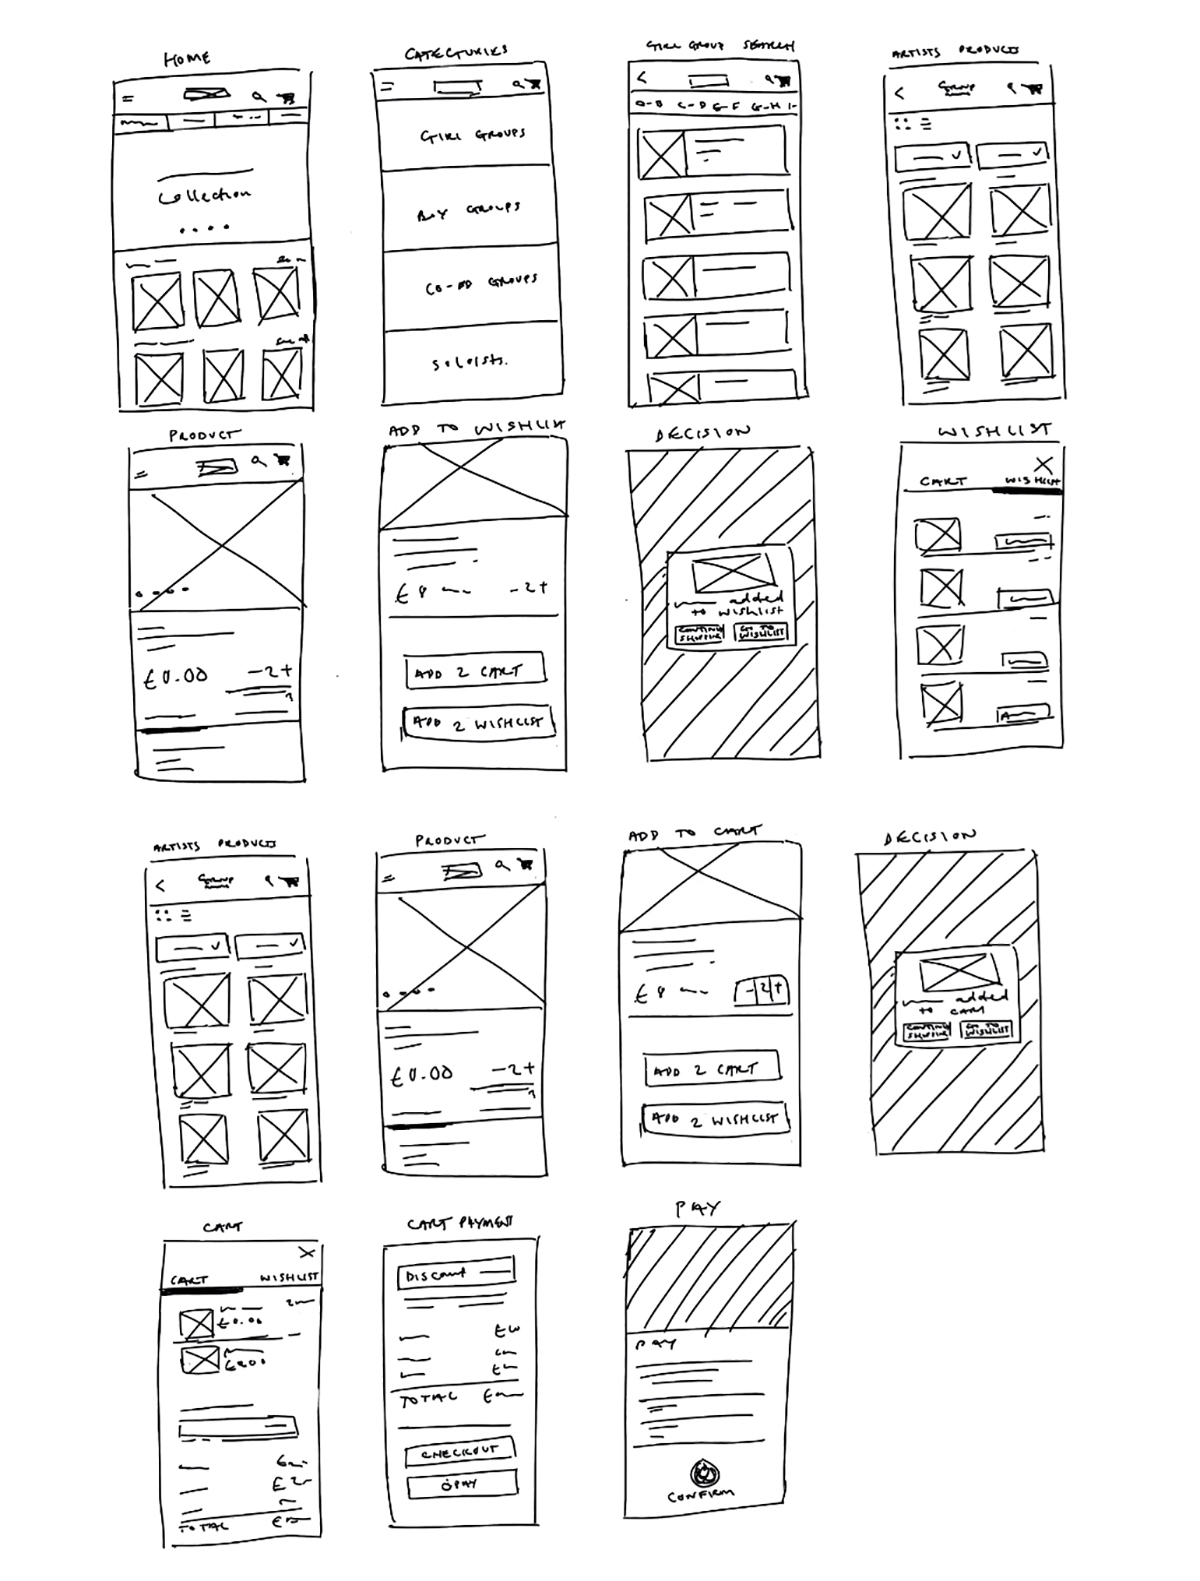 HOME
Collection
CATEGORIES
GIRL GROUPS
BOY GROUPS
CO-ED GROUPS
SOLOISTS.
GIRL GROUP SEARCH
A-B C-D E-F G-H I-
ARTISTS PRODUCTS
GROUP
PRODUCT
£0.00 -2+
ADD TO WISHLIST
-2+
ADD 2 CART
ADD 2 WISHLIST
DECISION
added
to WISHLIST
CONTINUE
SHOPPING
GO TO
WISHLIST
WISHLIST
X
CART WISHLIST
ARTISTS PRODUCTS
GROUP
PRODUCT
£0.00 -2+
ADD TO CART
-2+
ADD 2 CART
ADD 2 WISHLIST
DECISION
added
to CART
CONTINUE
SHOPPING
GO TO
WISHLIST
CART
X
CART WISHLIST
£0.00
TOTAL
CART PAYMENT
DISCOUNT
TOTAL
CHECKOUT
PAY
PAY
PAY
CONFIRM